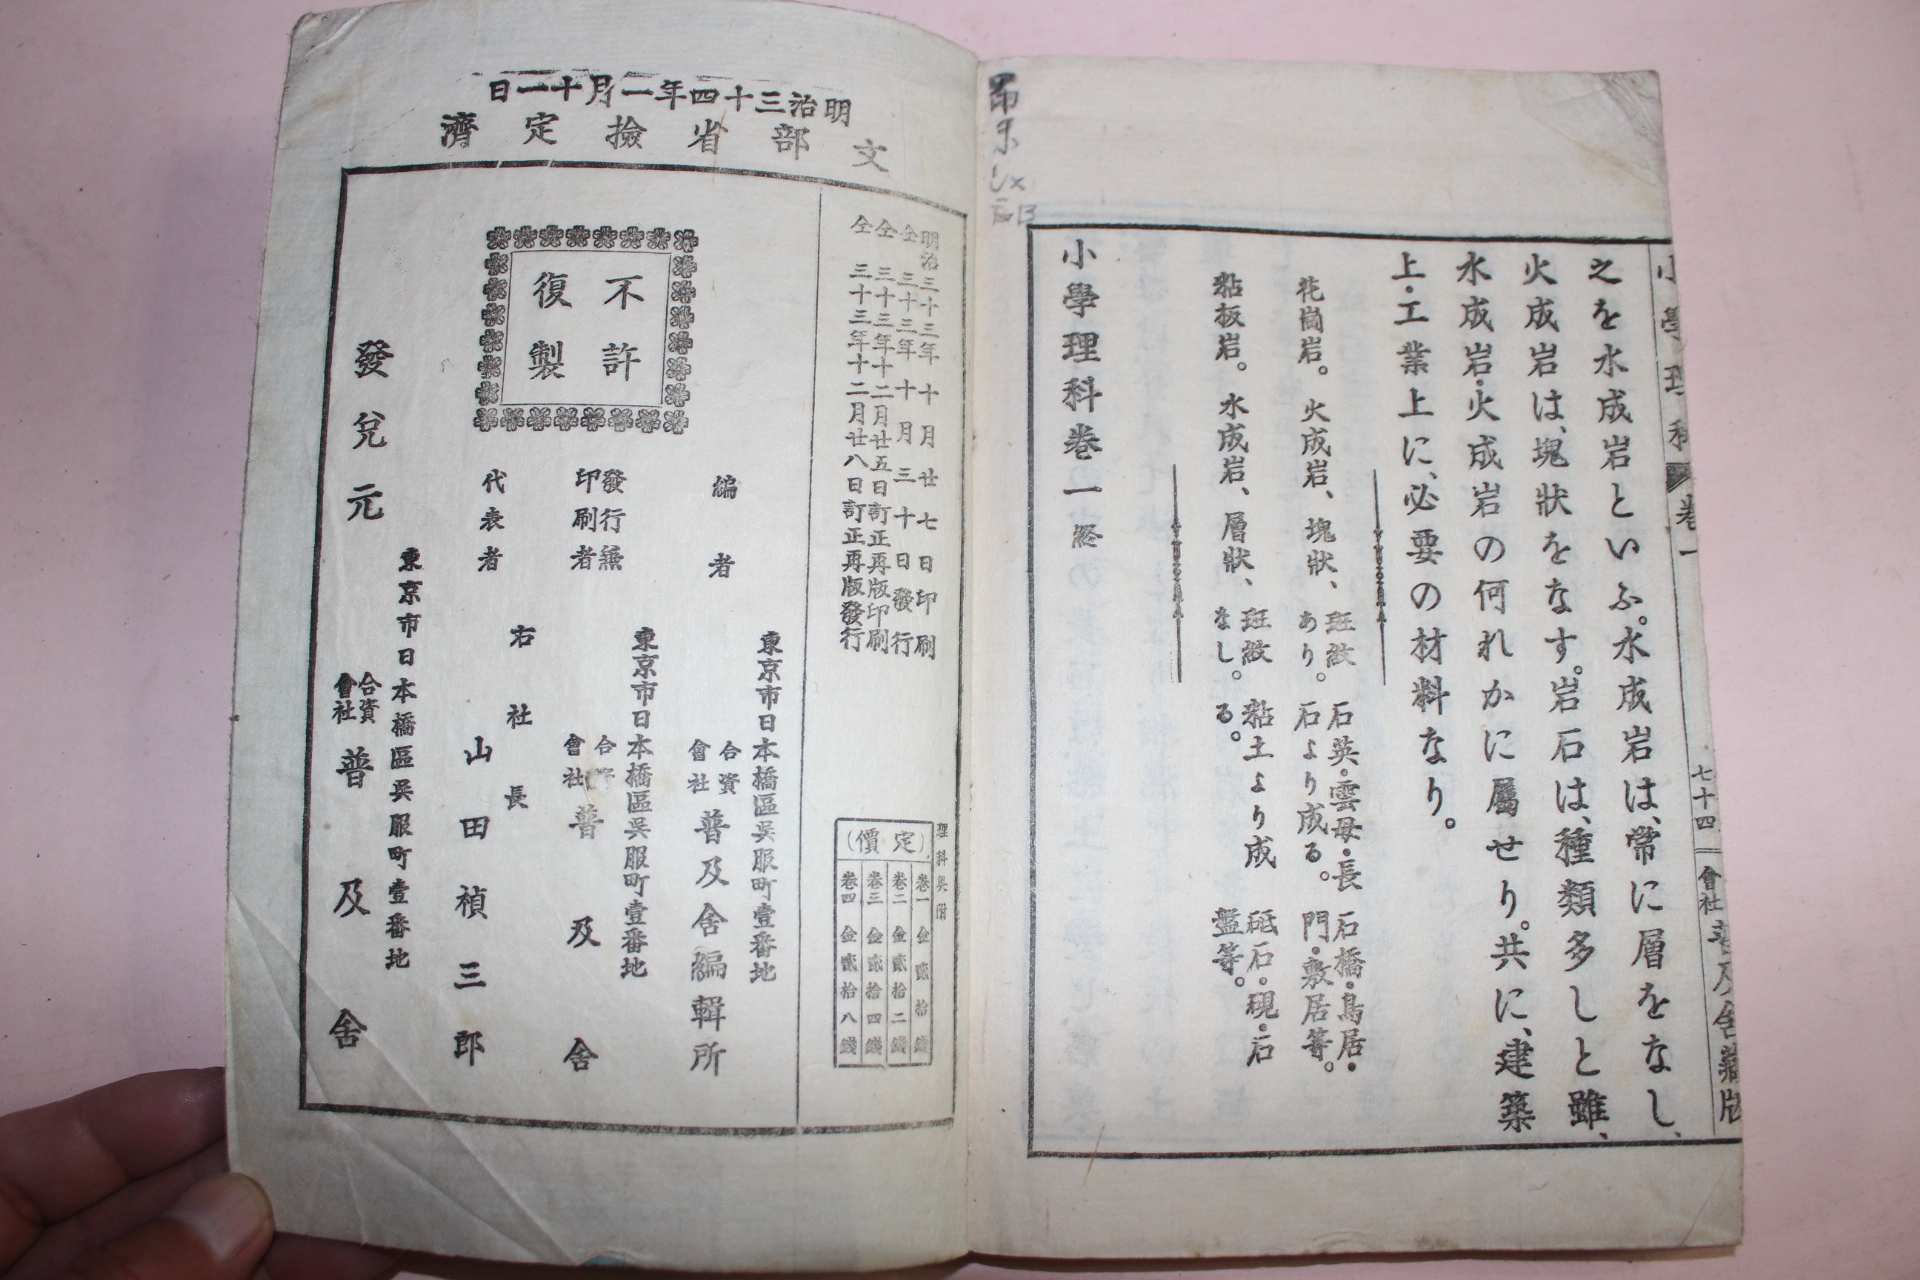 之を水成岩といふ。水成岩は、常に層をなし、
火成岩は、塊狀をなす。岩石は、種類多しと雖、
水成岩・火成岩の何れかに屬せり。共に、建築
上・工業上に、必要の材料なり。
花崗岩。火成岩、塊狀、斑紋あり。石英・雲母・長石より成る。石橋・鳥居・門・敷居等。
粘板岩。水成岩、層狀、斑紋なし。粘土より成る。砥石・硯・石盤等。
小學理科卷一終
小學理科 卷一 七十四 會社普及舍藏版
明治三十四年一月十一日
文部省檢定濟
明治三十三年十月廿七日印刷
仝三十三年十月三十日發行
仝三十三年十二月廿五日訂正再版印刷
仝三十三年十二月廿八日訂正再版發行
定價
卷一金貳拾錢
卷二金貳拾二錢
卷三金貳拾四錢
卷四金貳拾八錢
不許
復製
東京市日本橋區吳服町壹番地
編者 合資會社普及舍編輯所
東京市日本橋區吳服町壹番地
發行兼印刷者 合資會社普及舍
右社長
代表者 山田禎三郎
東京市日本橋區吳服町壹番地
發兌元 合資會社普及舍